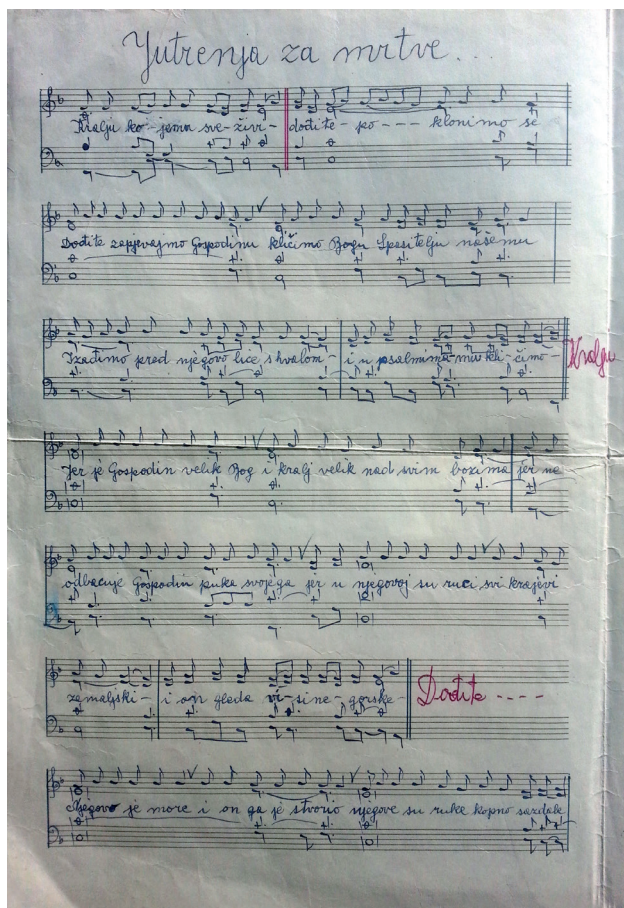 Jutrenja za mrtve...
Kralju ko-jema sve-živi- dođite-po---- klonimo se
Dođite zapjevajmo Gospodinu kličimo Bogu Spasitelju našemu
Izađimo pred njegovo lice s hvalom- i u psalmima mu kli-čimo- Kralju
Jer je Gospodin velik Bog i kralj velik nad svim bozima jer ne
odbacuje Gospodin puka svojega jer u njegovoj su ruci svi krajevi
zemaljski- i on gleda vi-si-ne-gorske- Dođite ----
Njegovo je more i on ga je stvorio njegove su ruke kopno sazdale